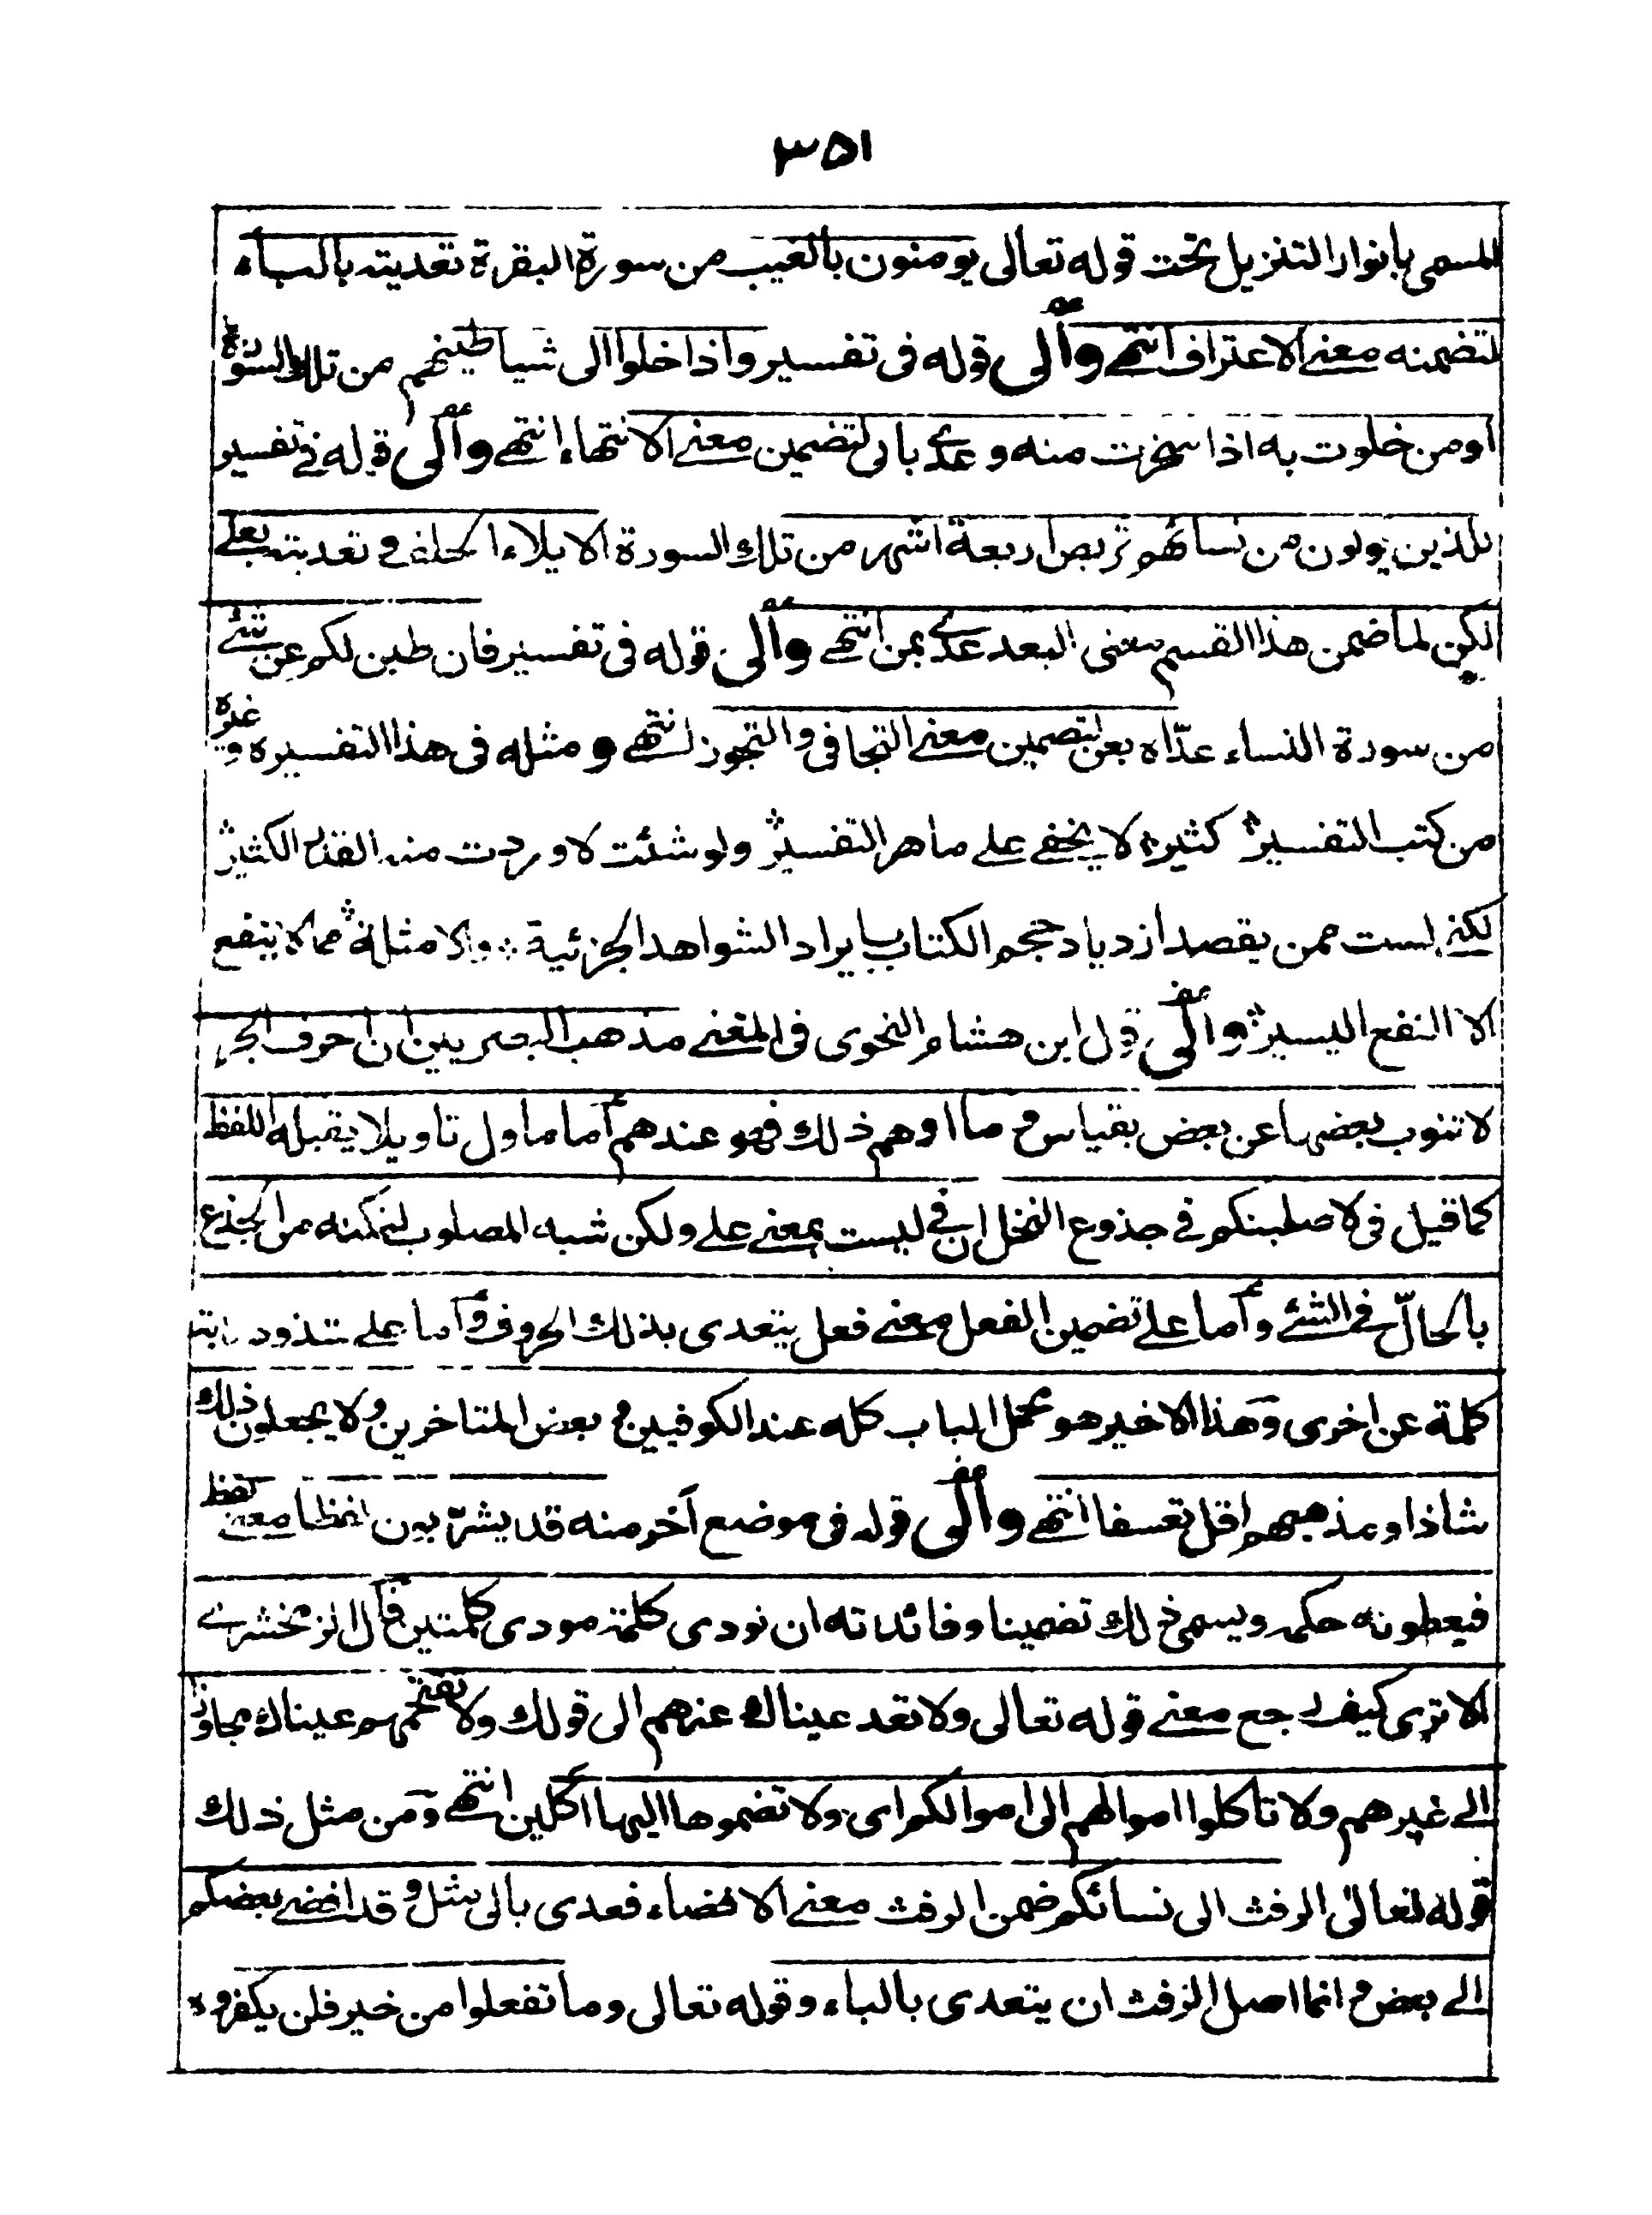 ٣٥١
المسمى بانوار التنزيل تحت قوله تعالى يومنون بالغيب من سورة البقرة تعديته بالباء
لتضمنه معنے الاعتراف انتهے والى قوله فى تفسير واذا خلوا الى شياطينهم من تلك السورة
او من خلوت به اذا سخرت منه وعدے بالى لتضمين معنے الانتهاء انتهے والى قوله فے تفسير
للذين يولون من نسائهم تربص اربعة اشهر من تلك السورة الايلاء الحلف وتعديته بعلے
لكن لما ضمن هذا القسم معنى البعد عدے بمن انتهے والى قوله فى تفسير فان طبن لكم عن شئے
من سورة النساء عدّاه بعن لتضمين معنے التجافى والتجوز انتهے ومثله فى هذا التفسير وغيره
من كتب التفسير كثير لا يخفے علے ماهر التفسير ولو شئت لاوردت منه القدر الكثير
لكنے لست ممن يقصد ازدياد حجم الكتاب بايراد الشواهد الجزئية والامثلة مما لا ينفع
الا النفع اليسير والى قول ابن هشام النحوى فى المغنے مذهب البصريين ان احرف الجر
لا تنوب بعضها عن بعض بقياس وما اوهم ذلك فهو عندهم اما ماول تاويلا يقبله اللفظ
كما قيل فى لاصلبنكم فے جذوع النخل ان فے ليست بمعنے علے ولكن شبه المصلوب لتمكنه من الجذع
بالحالّ فے الشئے واما علے تضمين الفعل معنے فعل يتعدى بذلك الحروف واما علے شذوذ انابة
كلمة عن اخرى وهذا الاخير هو محمل الباب كله عند الكوفيين وبعض المتاخرين ولا يجعلون ذلك
شاذا ومذهبهم اقل تعسفا انتهے والى قوله فى موضع آخر منه قد يشرّبون لفظا معنے لفظ
فيعطونه حكمه ويسمى ذلك تضمينا وفائدته ان تودى كلمة مودى كلمتين قال الزمخشرے
الا ترى كيف رجع معنے قوله تعالى ولا تعد عيناك عنهم الى قولك ولا تقتحمهم عيناك مجاوزا
الے غيرهم ولا تاكلوا اموالهم الى اموالكم اى ولا تضموها اليها آكلين انتهے ومن مثل ذلك
قوله تعالى الرفث الى نسائكم ضمن الرفث معنے الافضاء فعدى بالى مثل وقد افضے بعضكم
الے بعض وانما اصل الرفث ان يتعدى بالباء وقوله تعالى وما تفعلوا من خير فلن يكفروه